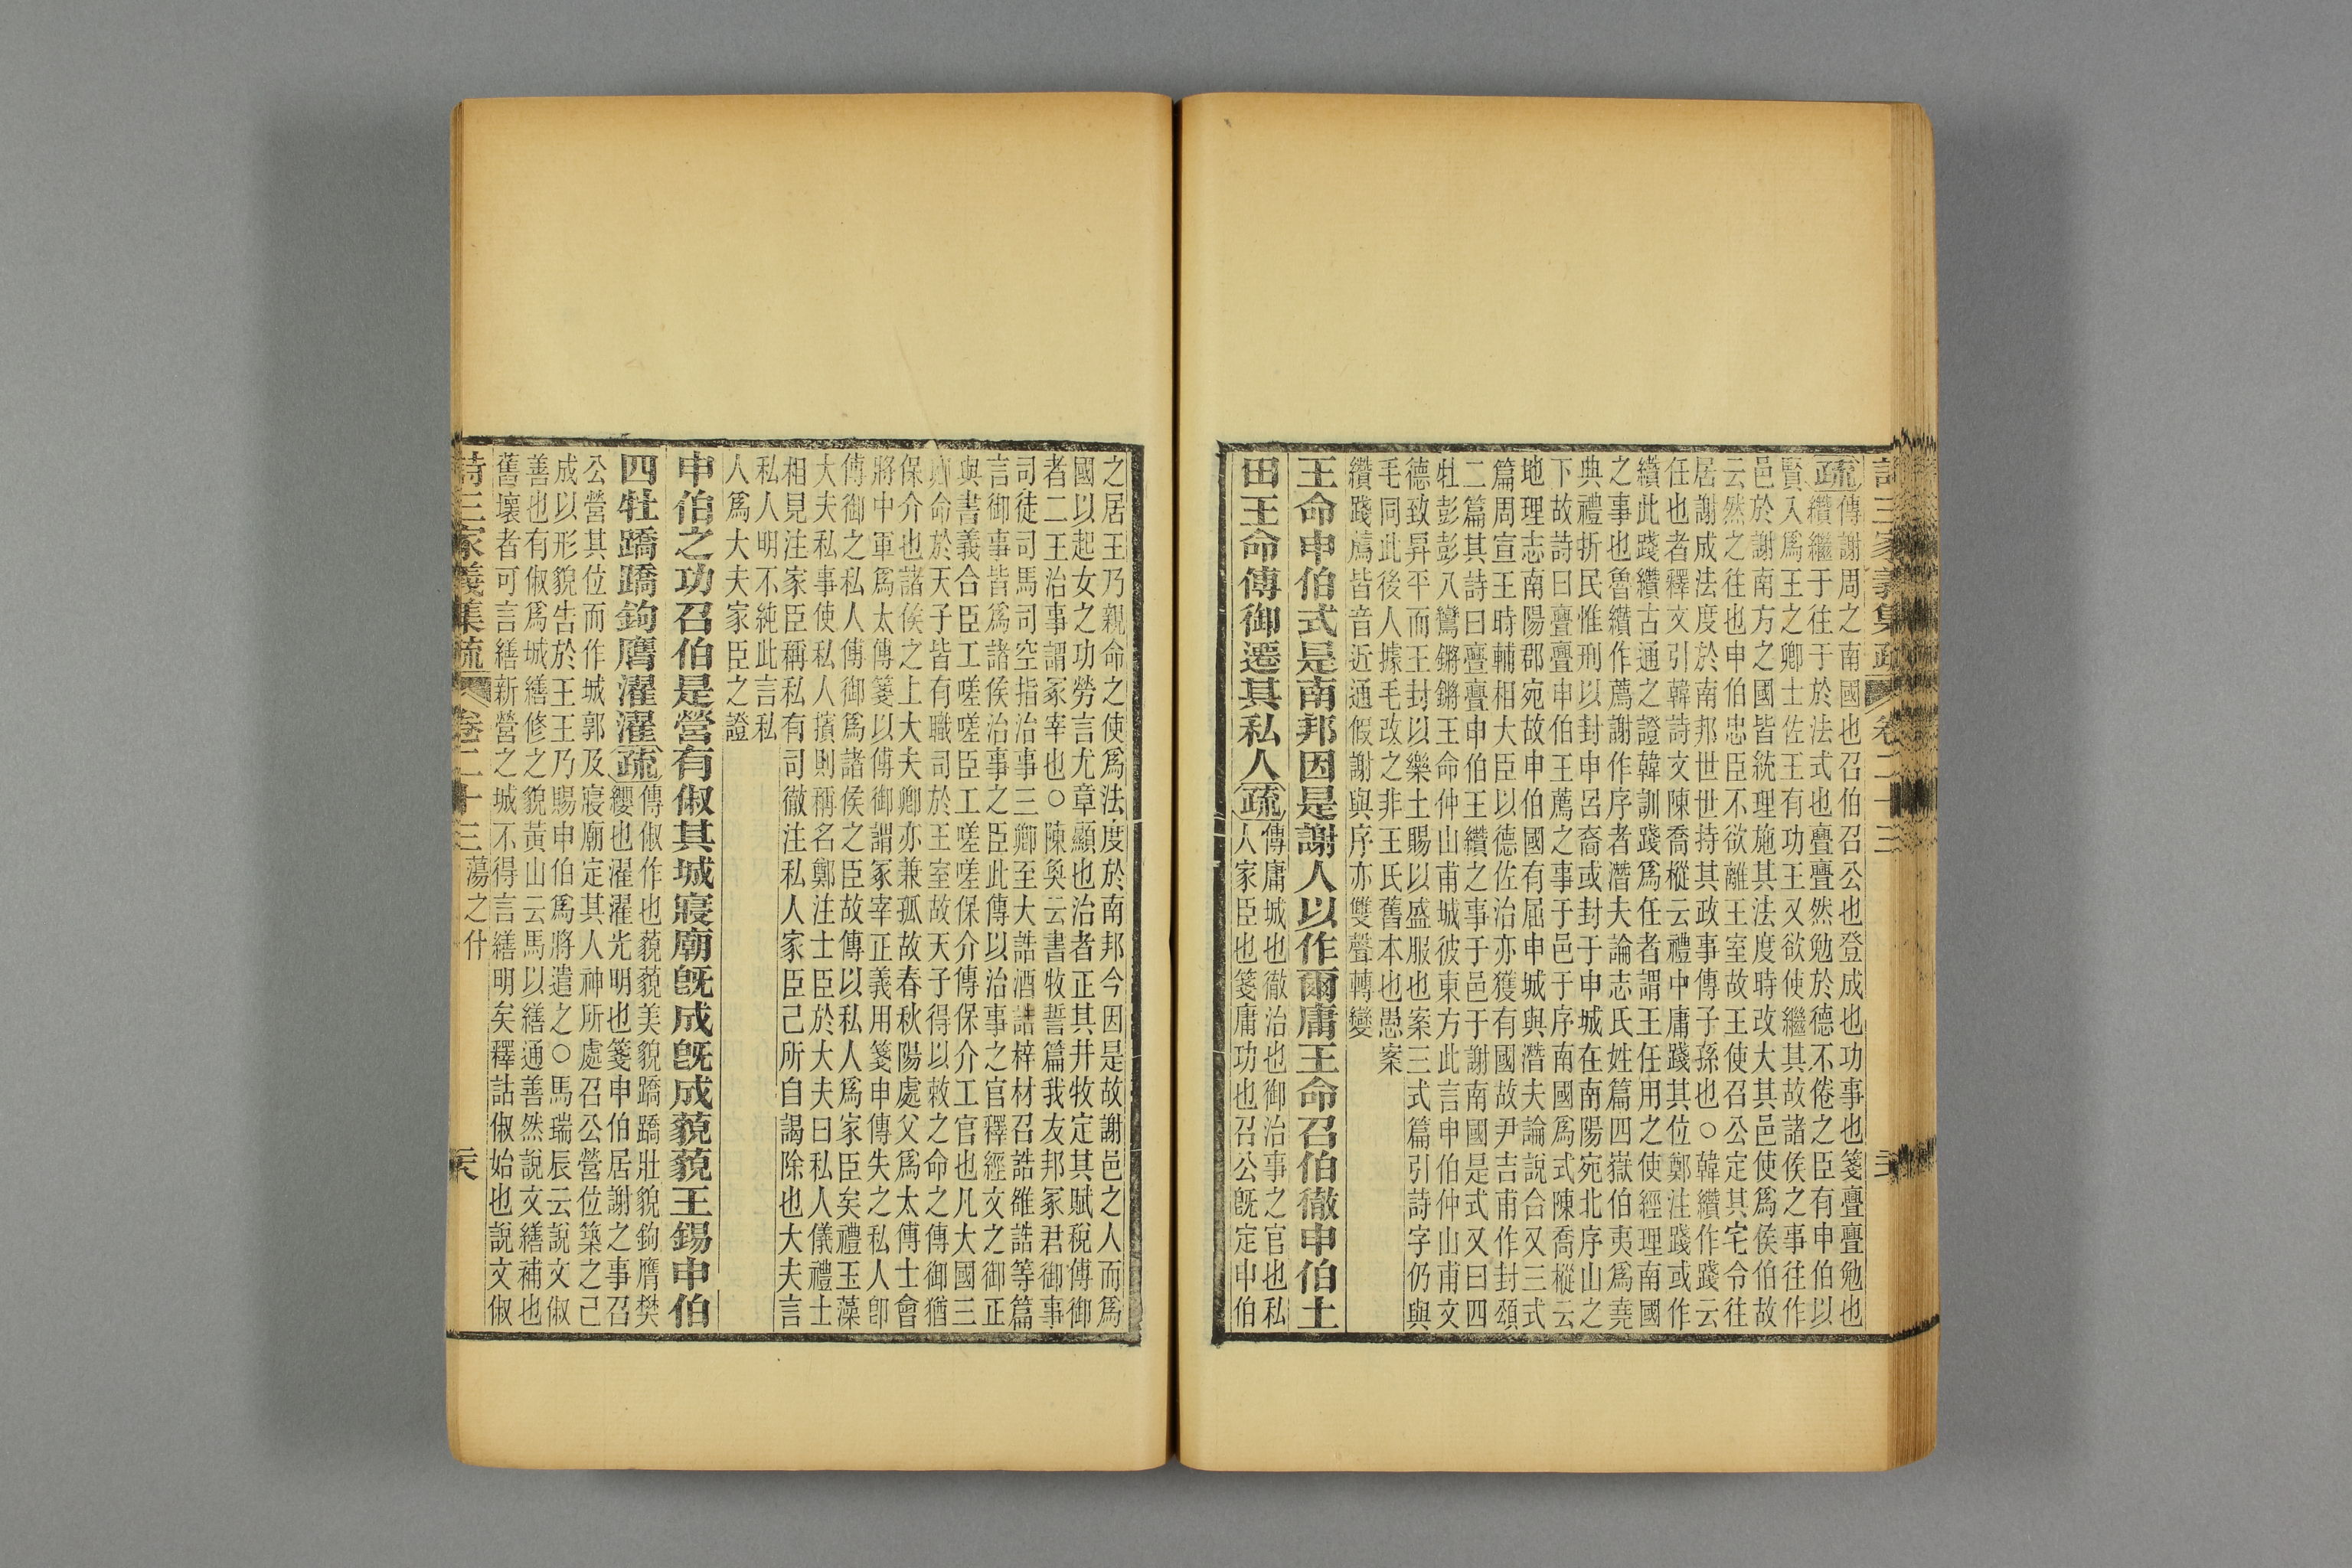 詩三家義集疏 卷二十三
疏 傳謝周之南國也召伯召公也登成也功事也箋亹亹勉也
纘繼于往于於法式也亹亹然勉於德不倦之臣有申伯以
賢入爲王之卿士佐王有功王又欲使繼其故諸侯之事往作
邑於謝南方之國皆統理施其法度時改大其邑使爲侯伯故
云然之往也申伯忠臣不欲離王室故王使召公定其宅令往
居謝成法度於南邦世世持其政事傳子孫也○韓纘作踐云
任也者釋文引韓詩文陳喬樅云禮中庸踐其位鄭注踐或作
纘此踐纘古通之證韓訓踐爲任者謂王任用之使經理南國
之事也魯纘作薦謝作序者潛夫論志氏姓篇四嶽伯夷爲堯
典禮折民惟刑以封申呂裔或封于申城在南陽宛北序山之
下故詩曰亹亹申伯王薦之事于邑于序南國爲式陳喬樅云
地理志南陽郡宛故申伯國有屈申城與潛夫論說合又三式
篇周宣王時輔相大臣以德佐治亦獲有國故尹吉甫作封頌
二篇其詩曰亹亹申伯王纘之事于邑于謝南國是式又曰四
牡彭彭八鸞鏘鏘王命仲山甫城彼東方此言申伯仲山甫文
德致昇平而王封以樂土賜以盛服也案三式篇引詩字仍與
毛同此後人據毛改之非王氏舊本也愚案
纘踐薦皆音近通假謝與序亦雙聲轉變
王命申伯式是南邦因是謝人以作爾庸王命召伯徹申伯土
田王命傅御遷其私人 疏 傳庸城也徹治也御治事之官也私
人家臣也箋庸功也召公旣定申伯
之居王乃親命之使爲法度於南邦今因是故謝邑之人而爲
國以起女之功勞言尤章顯也治者正其井牧定其賦稅傅御
者二王治事謂冢宰也○陳奐云書牧誓篇我友邦冢君御事
司徒司馬司空指治事三卿至大誥酒誥梓材召誥雒誥等篇
言御事皆爲諸侯治事之臣此傳以治事之官釋經文之御正
與書義合臣工嗟嗟臣工嗟嗟保介傳保介工官也凡大國三
卿命於天子皆有職司於王室故天子得以敕之命之傅御猶
保介也諸侯之上大夫卿亦兼孤故春秋陽處父爲太傅士會
將中軍爲太傅箋以傅御謂冢宰正義用箋申傳失之私人卽
傅御之私人傅御爲諸侯之臣故傳以私人爲家臣矣禮玉藻
大夫私事使私人擯則稱名鄭注士臣於大夫曰私人儀禮士
相見注家臣稱私有司徹注私人家臣己所自謁除也大夫言
私人明不純此言私
人爲大夫家臣之證
申伯之功召伯是營有俶其城寢廟旣成旣成藐藐王錫申伯
四牡蹻蹻鉤膺濯濯 疏 傳俶作也藐藐美貌蹻蹻壯貌鉤膺樊
纓也濯濯光明也箋申伯居謝之事召
公營其位而作城郭及寢廟定其人神所處召公營位築之已
成以形貌告於王王乃賜申伯爲將遣之○馬瑞辰云說文俶
善也有俶爲城繕修之貌黃山云馬以繕通善然說文繕補也
舊壞者可言繕新營之城不得言繕明矣釋詁俶始也說文俶
詩三家義集疏 卷二十三 蕩之什